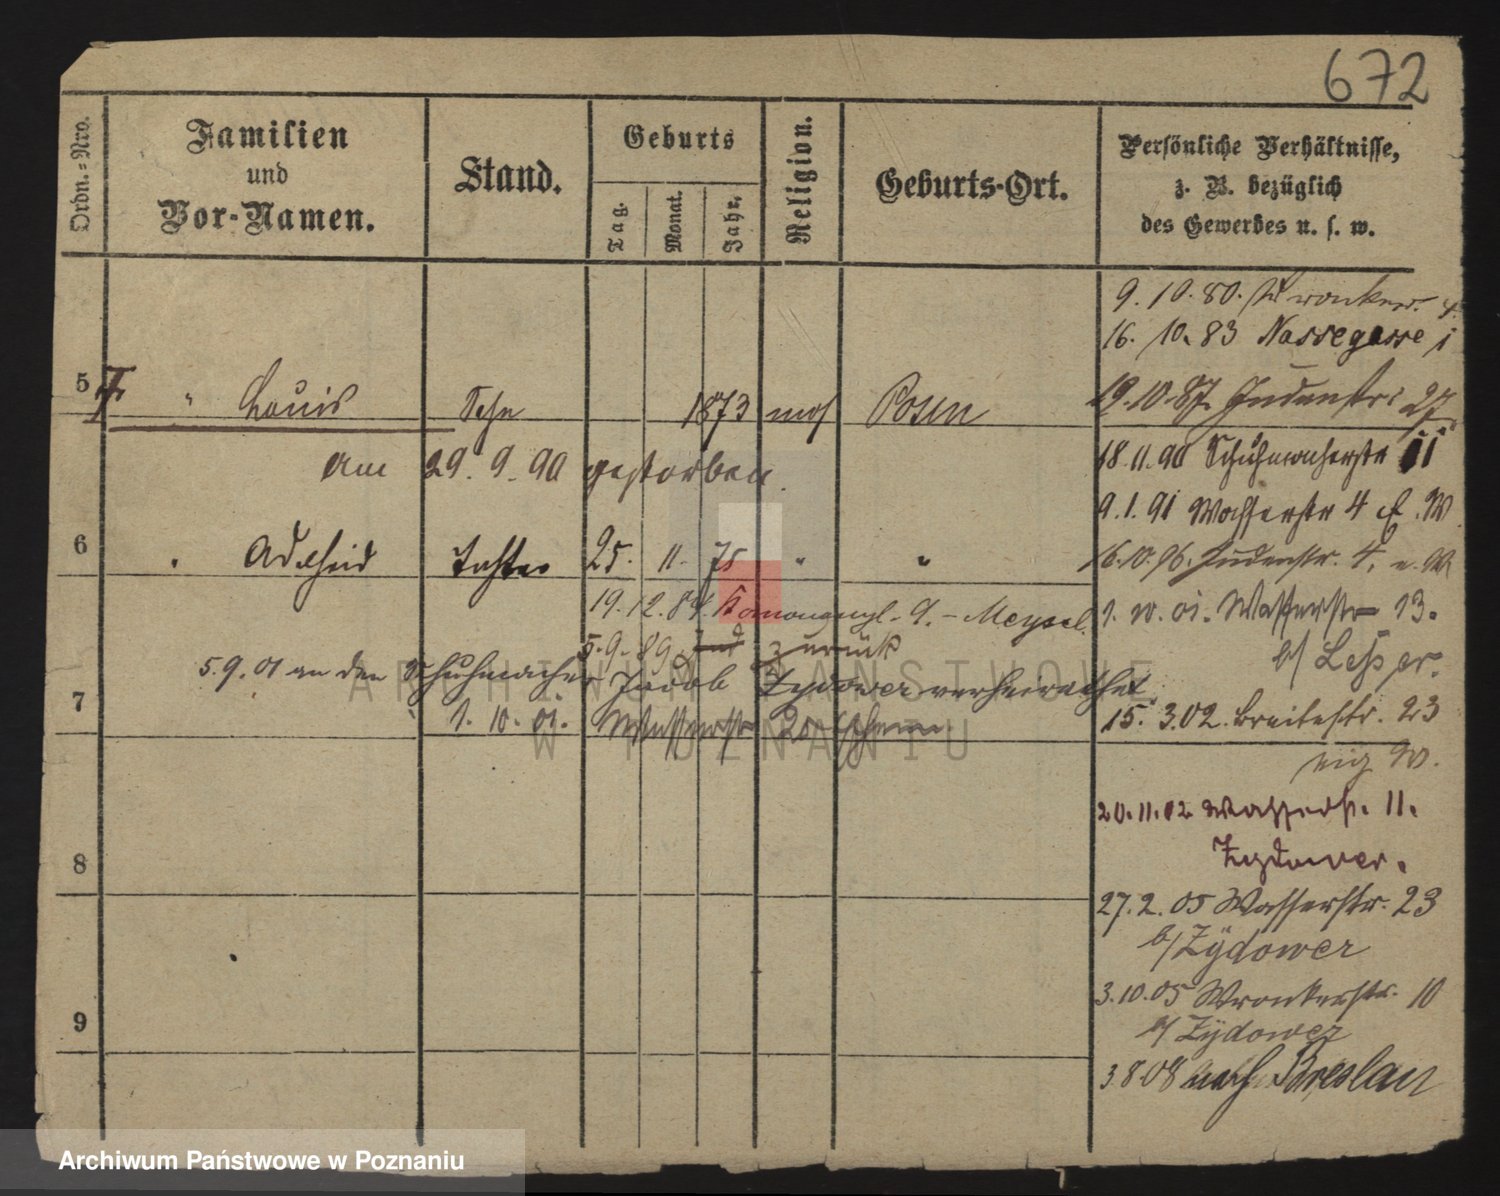 672
Ordn.-Nro.
Familien
und
Vor-Namen.
Stand.
Geburts
Tag.
Monat.
Jahr.
Religion.
Geburts-Ort.
Persönliche Verhältnisse,
z. B. bezüglich
des Gewerbes u. s. w.
9. 10. 80. Wronker. 4.
16. 10. 83 Nassegasse 1
5 " Louis Sohn 1873 mos Posen
19.10.87. Judenstr. 27
am 29. 9. 90 gestorben.
18.11.90 Schuhmacherstr 11
9.1.91 Wasserstr 4 E. W.
6 " Adelheid Tochter 25. 11. 75 " "
16.10.96. Judenstr. 4, e. W
19. 12. 84. 9. -
1. 10. 01. Wasserstr 13.
b/ Lesser.
5. 9. 89 zurück
5.9.01 an den Schuhmacher Jacob Zydower verheirathet
7 1. 10. 01. Wasserstr
15. 3.02. Breitestr. 23
eig W.
20.11.02 Wasserstr. 11.
Zydower.
8
27.2.05 Wasserstr. 23
b/ Zydower
3.10.05 Wronkerstr. 10
b/ Zydower
9
3 8 08 nach Breslau
ARCHIWUM PAŃSTWOWE
W POZNANIU
Archiwum Państwowe w Poznaniu